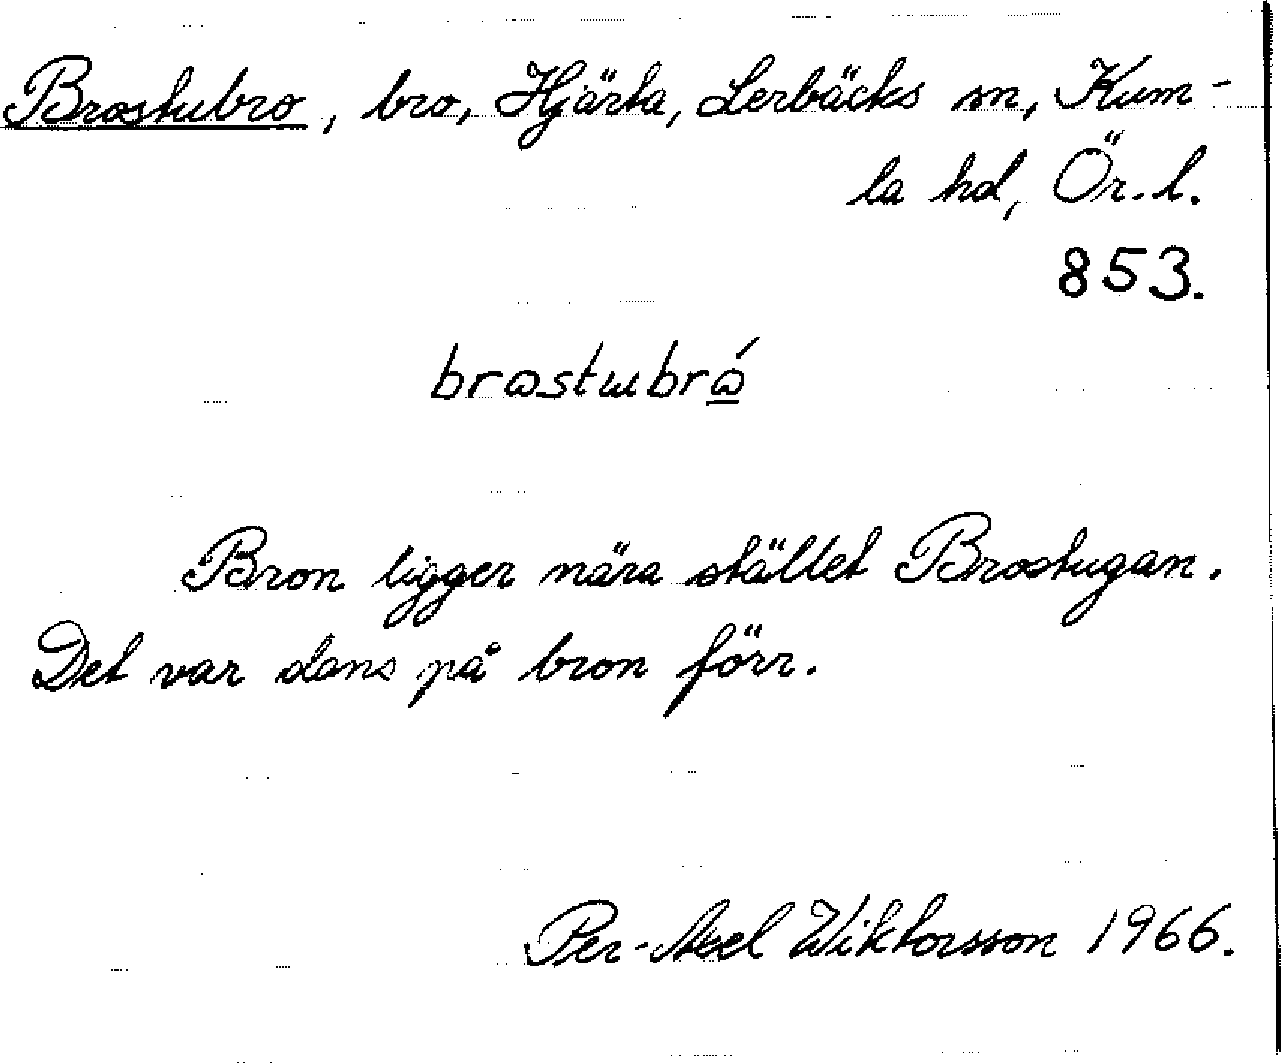 Brostubro, bro, Hjärta, Lerbäcks sn, Kum-
la hd, Ör. l.
853.
brɷstɯbrɷ́
Bron ligger nära stället Brostugan.
Det var dans på bron förr.
Per-Axel Wiktorsson 1966.